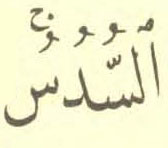 ٱلسُّدُسُۚ